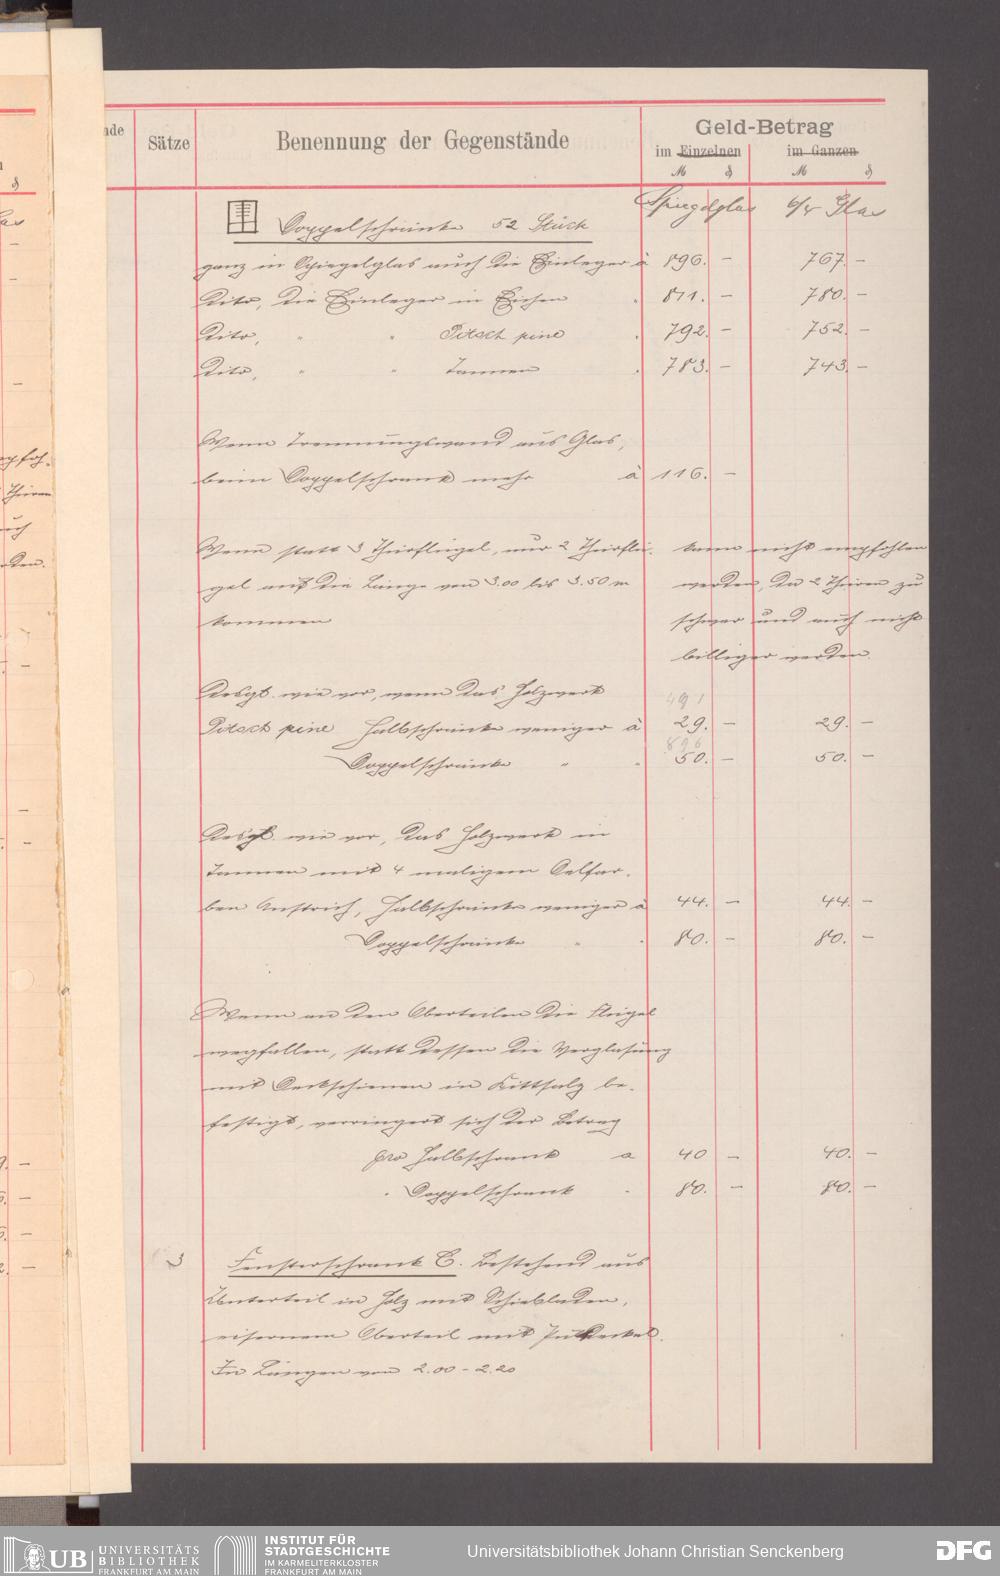 Sätze Benennung der Gegenstände Geld-Betrag
im Einzelnen im Ganzen
M ₰ M ₰
Spiegelglas 6/4 Glas
Doppelschränke 52 Stück
ganz in Spiegelglas auch die Einleger à 896. – 767. –
Dito, die Einleger in Eichen " 811. – 780. –
Dito, " " Pitsch pine " 792. – 752. –
Dito, " " Tannen " 783. – 743. –
Wenn Trennungswand aus Glas,
beim Doppelschrank mehr à 116. –
Wenn statt 3 Thürflügel, nur 2 Thürflü- kann nicht empfohlen
gel auf die Länge von 3.00 bis 3.50 m werden, da 2 Thüren zu
kommen schwer und auch nicht
billiger werden.
Desgl. wie vor, wenn das Holzwerk
491
Pitsch pine Halbschränke weniger à 29. – 29. –
896
Doppelschränke " " 50. – 50. –
Desgl. wie vor, das Holzwerk in
Tannen mit 4 maligem Oelfar-
ben Anstrich, Halbschränke weniger à 44. – 44. –
Doppelschränke " " 80. – 80. –
Wenn an den Oberteilen die Flügel
wegfallen, statt dessen die Verglasung
mit Deckschienen in Kittfalz be-
festigt, verringert sich der Betrag
pro Halbschrank a 40 – 40. –
" Doppelschrank " 80. – 80. –
3 Fensterschrank C. Bestehend aus
Unterteil in Holz mit Schiebladen,
eisernem Oberteil mit
In Längen von 2.00 – 2.20
UB UNIVERSITÄTS
BIBLIOTHEK
FRANKFURT AM MAIN
INSTITUT FÜR
STADTGESCHICHTE
IM KARMELITERKLOSTER
FRANKFURT AM MAIN
Universitätsbibliothek Johann Christian Senckenberg
DFG